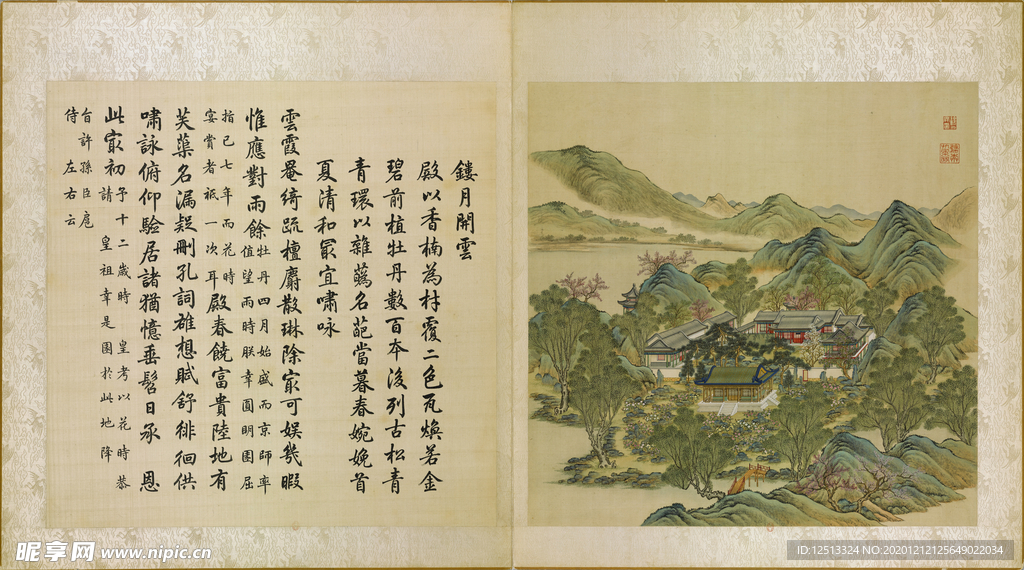 鏤月開雲
殿以香楠為材覆二色瓦煥若金
碧前植牡丹數百本後列古松青
青環以雜蘤名葩當暮春婉娩首
夏清和最宜嘯咏
雲霞罨綺疏檀麝散琳除最可娛幾暇
惟應對雨餘牡丹四月始盛而京師率值望雨時朕幸圓明園屈
指已七年而花時宴賞者祗一次耳殿春饒富貴陸地有
芙蕖名漏疑刪孔詞雄想賦舒徘徊供
嘯詠俯仰驗居諸猶憶垂髫日承恩
此最初予十二歲時皇考以花時恭請皇祖幸是園於此地降
旨許孫臣扈侍左右云
昵享网 www.nipic.cn
ID:12513324 NO:20201212125649022034